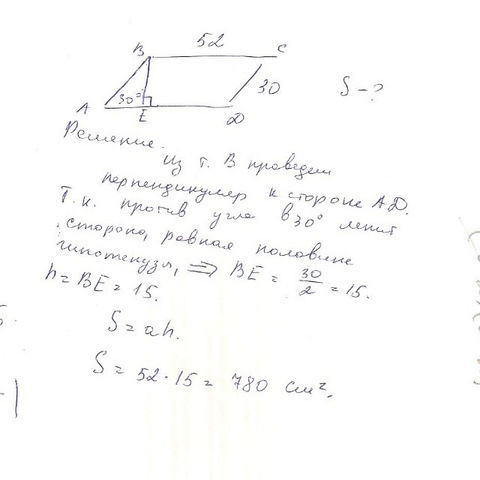 52
B C
30°
30
S - ?
A E D
Решение.
Из т. B проведем
перпендикуляр к стороне AD.
Т.к. против угла в 30° лежит
сторона, равная половине
гипотенузы, ⇒ BE = 30/2 = 15.
h = BE = 15.
S = ah.
S = 52 · 15 = 780 см².